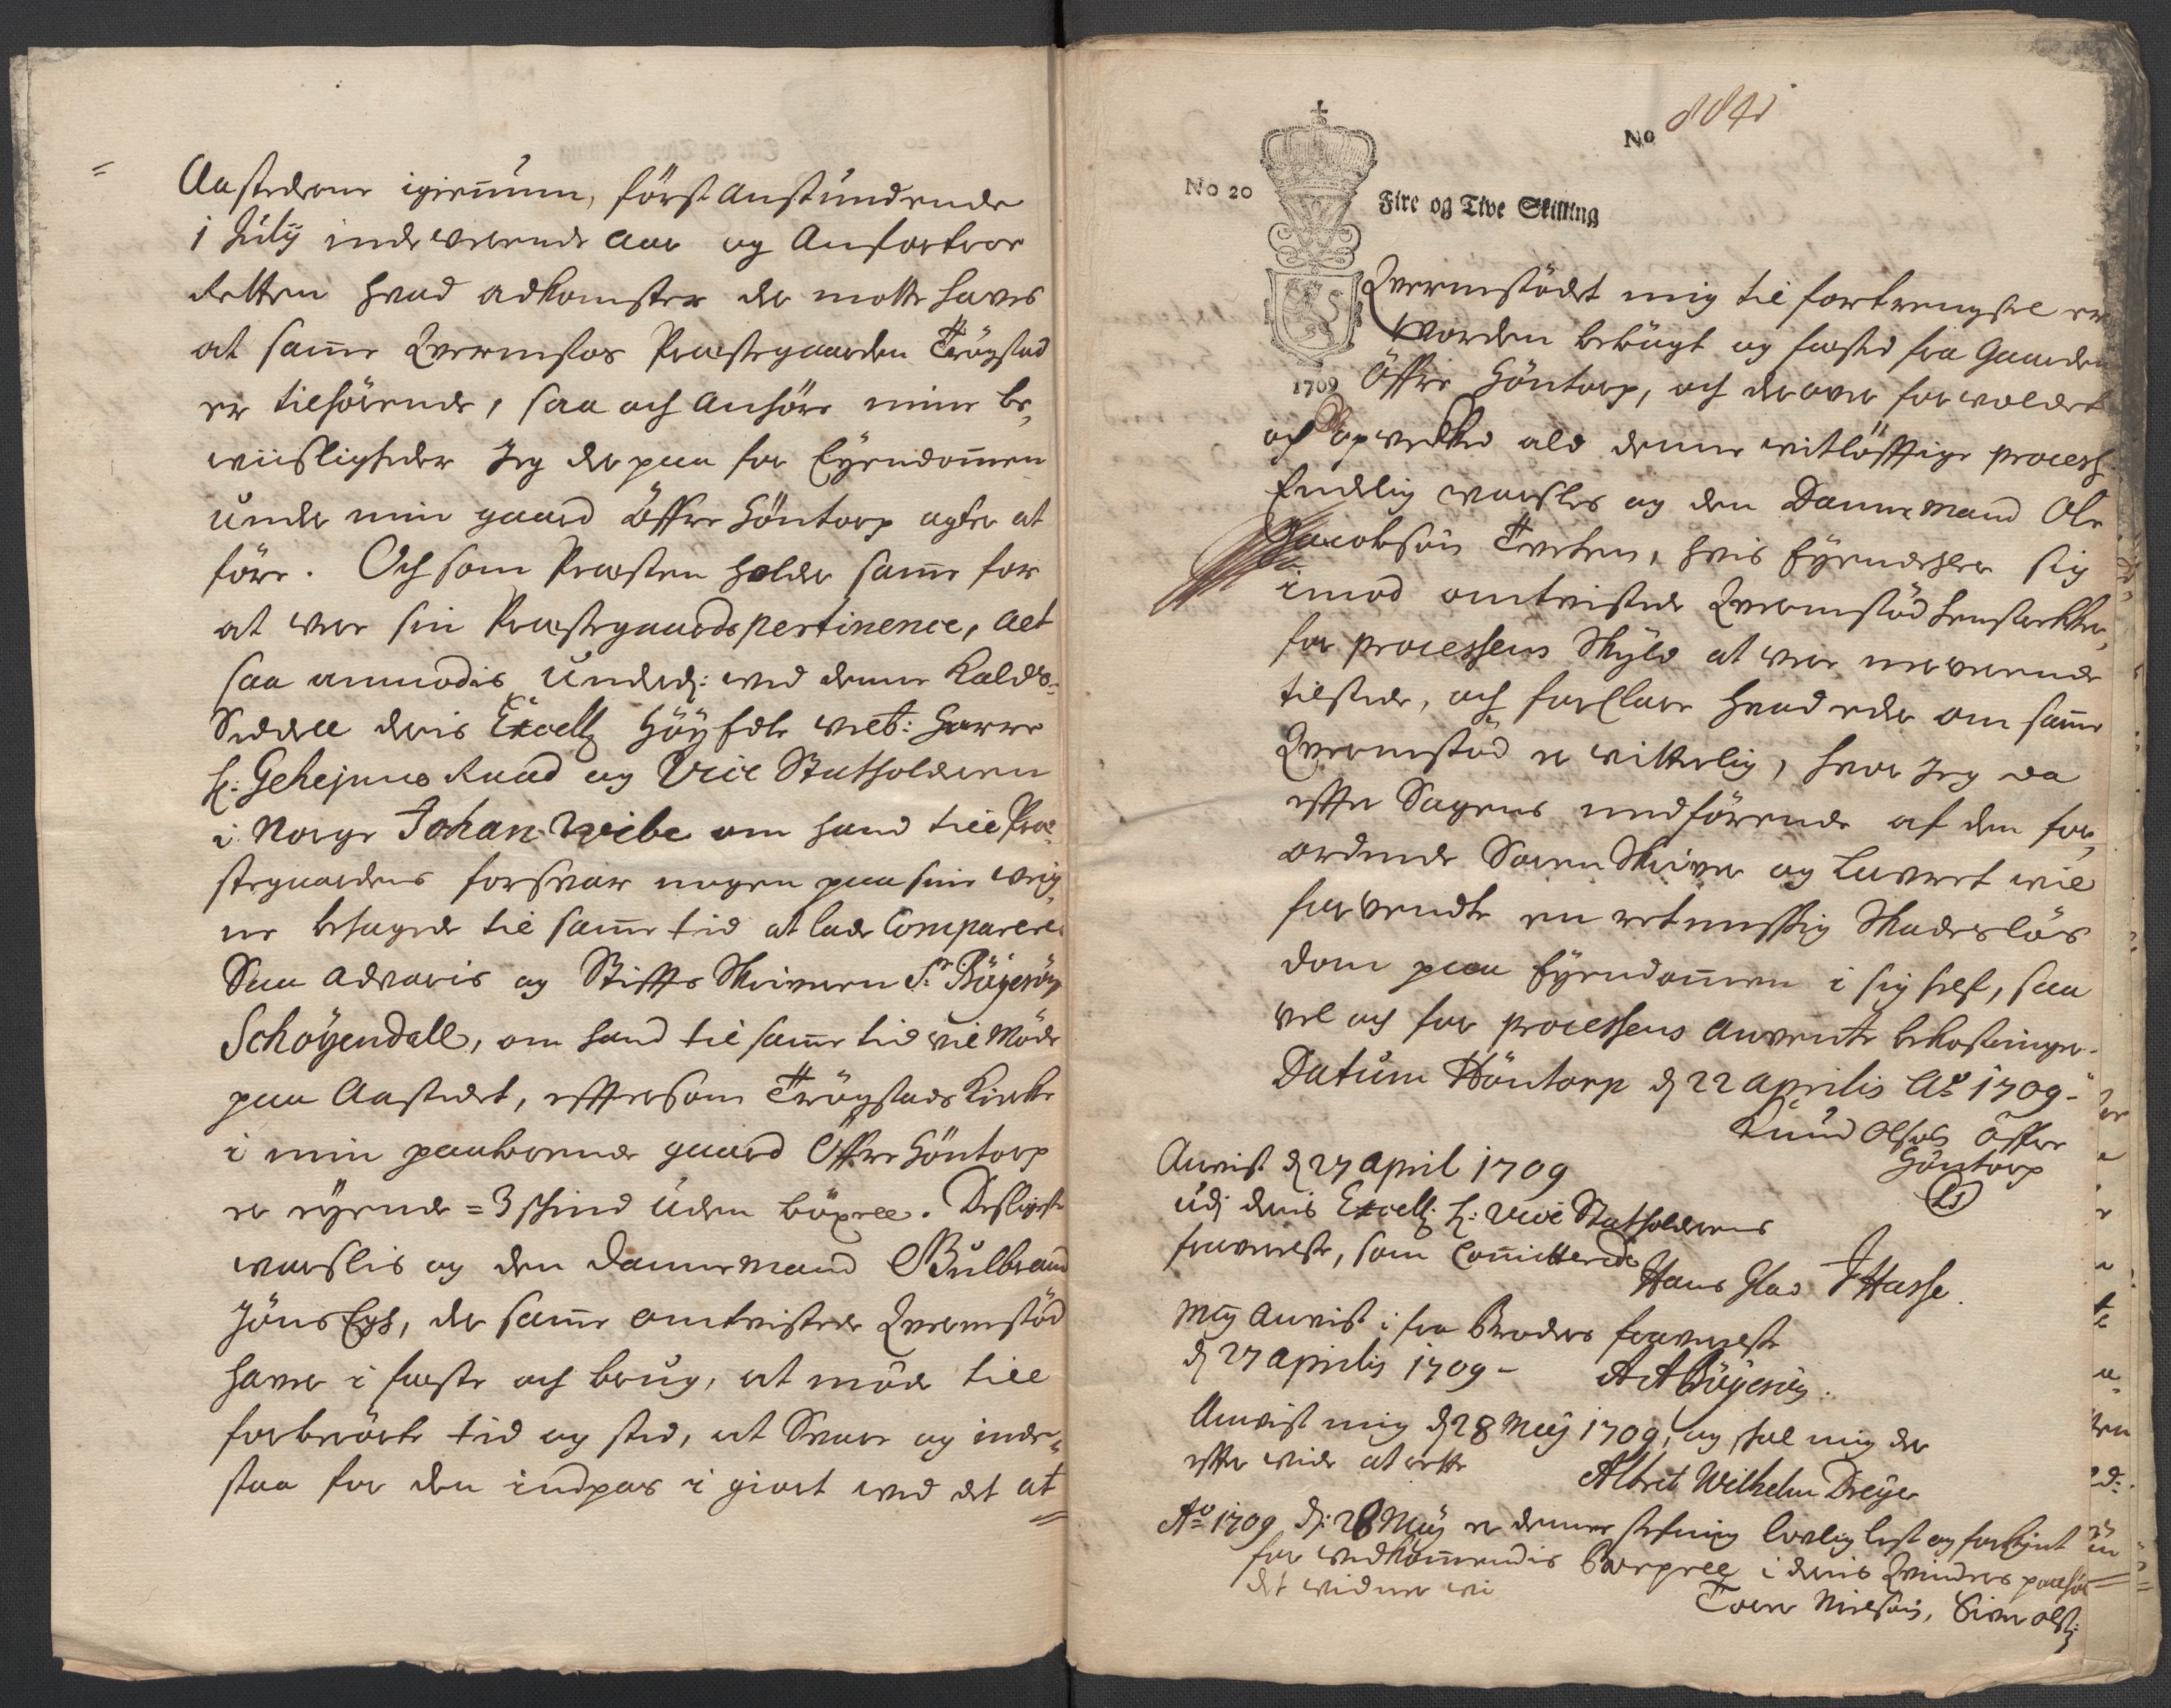 Aastederne igienum, först Anstundende
1 Julij indeverende Aar og Anfortror
Retten hvad adkomster der motte haves
at samme Qvernfos Præstegaarden Trögstad
er tilhörende, saa och Anhöre mine be,
wiisligheder Jeg der paa for Eyendommen
under min gaard Öffre Höntorp agter at
före. Och som Præsten holder samme for
at være sin Præstegaards pertinence, alt
saa anmodis Underd: med denne Kalds-
Seddell deris Excell: Höyædle velb: Herre
H: Gehejme Raad og Vice Statholderen
i Norge Johan Wibe om hand till Præ-
stegaardens forsvar nogen paa sine veig,
ne behager til samme tid at lade Comparere.
Saa advaris og Stiffts Skriveren Sr. Böyesön
Schöyendall, om hand til samme tid vil Möde
paa Aastedet, effter som Trögstads Kircke
i min paaboende gaard Öffre Höntorp
er eyende = 3 skind uden böxell. Desligeste
warslis og den Dannemand Gulbrand
Jöns Egh, der samme omtvistede Qvernstöd
haver i feste och brug, at möde till
forberörte tid og sted, at Svare og inde-
staa for den indpas i giort med det at
No 8841
No 20
Fire og Tive Skilling
1709
Qvernstödet mig til fortrengsel er
worden bebögt og fæsted fra Gaarden
Öffre Höntorp, och derover forvoldet
och opvecked ald denne vitlöfftige process
Endelig warsles og den Danne Mand Ole
Jacobsön Tveten, hvis Eyendehler sig
imod omtvistede Qvernstöd henstrekker,
for processens Skyld at være nerverende
tilstede, och forklare hvad eder om samme
Qvernstöd er vitterlig, hvor Jeg da
effter Sagens medförende af den for,
ordende Soren Skriver og Lavret vil
forvendte en retmessig Skadeslös
dom paa Eyendommen i sig self, saa
vel och for processens Anvente bekostninger.
Datum Höntorp d 22 aprilis Ao 1709-
Knud Olsøn Öffre
Höntorp
LS
Anvist d 27 April 1709
udi deris Excell: H: Vice Statholderens
fraverelse, som Committerede
Hans Glad JHasse.
Mig Anvist i fra Broders fraverelse
d 27 Aprilis 1709 - AABöyesön.
Anvist mig d 28 Maij 1709, og skal mig der
effter vide at rette
Albret Wilhelm Dreyer
Ao 1709 d: 28 Maij er denne stefning lovlig lest og forkynt
for vedkommendis Boepæll i deris Qvinders paahör
det vidner vi
Tore Nielsön, Siver Olsen